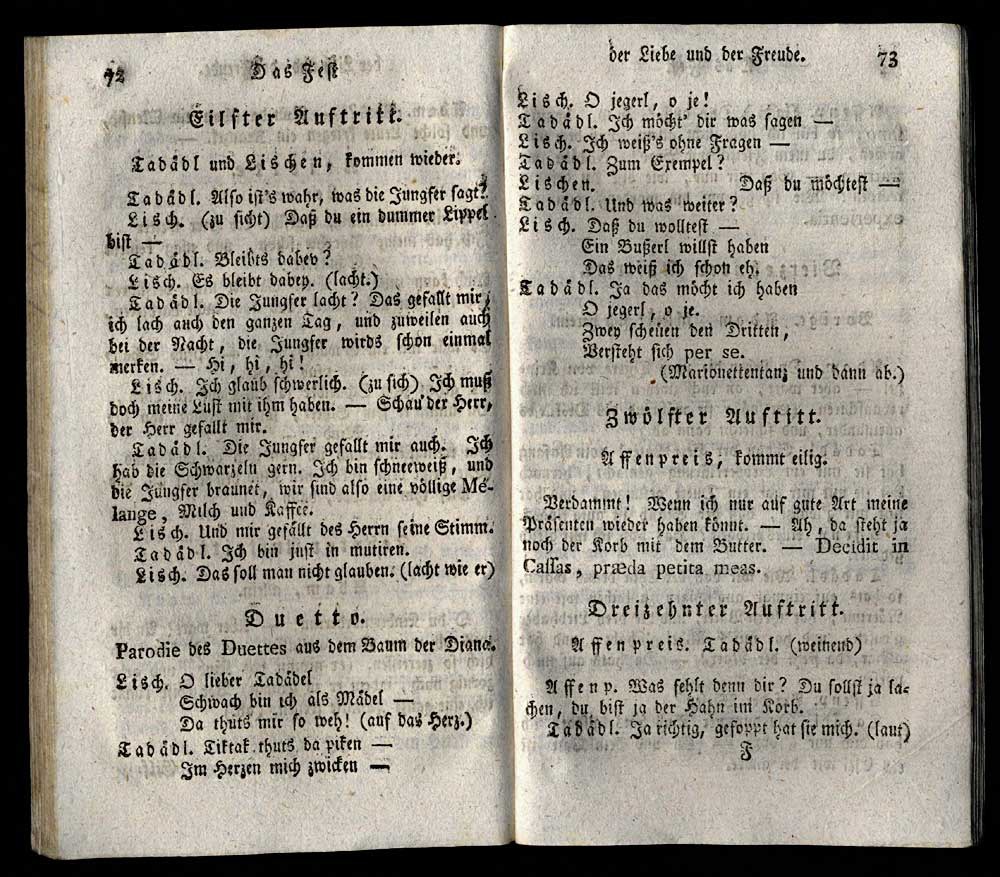 72 Das Fest
Eilfter Auftritt.
Tadädl und Lischen, kommen wieder.
Tadädl. Also ist's wahr, was die Jungfer sagt?
Lisch. (zu sicht) Daß du ein dummer Lippel
bist —
Tadädl. Bleibts dabey?
Lisch. Es bleibt dabey. (lacht.)
Tadädl. Die Jungfer lacht? Das gefallt mir,
ich lach auch den ganzen Tag, und zuweilen auch
bei der Nacht, die Jungfer wirds schon einmal
merken. — Hi, hi, hi!
Lisch. Ich glaub schwerlich. (zu sich) Ich muß
doch meine Lust mit ihm haben. — Schau der Herr,
der Herr gefallt mir.
Tadädl. Die Jungfer gefallt mir auch. Ich
hab die Schwarzeln gern. Ich bin schneeweiß, und
die Jungfer braunet, wir sind also eine völlige Mé-
lange, Milch und Kaffee.
Lisch. Und mir gefällt des Herrn seine Stimm.
Tadädl. Ich bin just in mutiren.
Lisch. Das soll man nicht glauben. (lacht wie er)
Duetto.
Parodie des Duettes aus dem Baum der Diana.
Lisch. O lieber Tadädel
Schwach bin ich als Mädel —
Da thuts mir so weh! (auf das Herz.)
Tadädl. Tiktak thuts da piken —
Im Herzen mich zwicken —
der Liebe und der Freude. 73
Lisch. O jegerl, o je!
Tadädl. Ich möcht' dir was sagen —
Lisch. Ich weiß's ohne Fragen —
Tadädl. Zum Exempel?
Lischen. Daß du möchtest —
Tadädl. Und was weiter?
Lisch. Daß du wolltest —
Ein Bußerl willst haben
Das weiß ich schon eh.
Tadädl. Ja das möcht ich haben
O jegerl, o je.
Zwey scheuen den Dritten,
Versteht sich per se.
(Marionettentanz und dann ab.)
Zwölfter Auftitt.
Affenpreis, kommt eilig.
Verdammt! Wenn ich nur auf gute Art meine
Präsenten wieder haben könnt. — Ah, da steht ja
noch der Korb mit dem Butter. — Decidit in
Cassas, præda petita meas.
Dreizehnter Auftritt.
Affenpreis. Tadädl. (weinend)
Affenp. Was fehlt denn dir? Du sollst ja la-
chen, du bist ja der Hahn im Korb.
Tadädl. Ja richtig, gefoppt hat sie mich. (lauf)
F